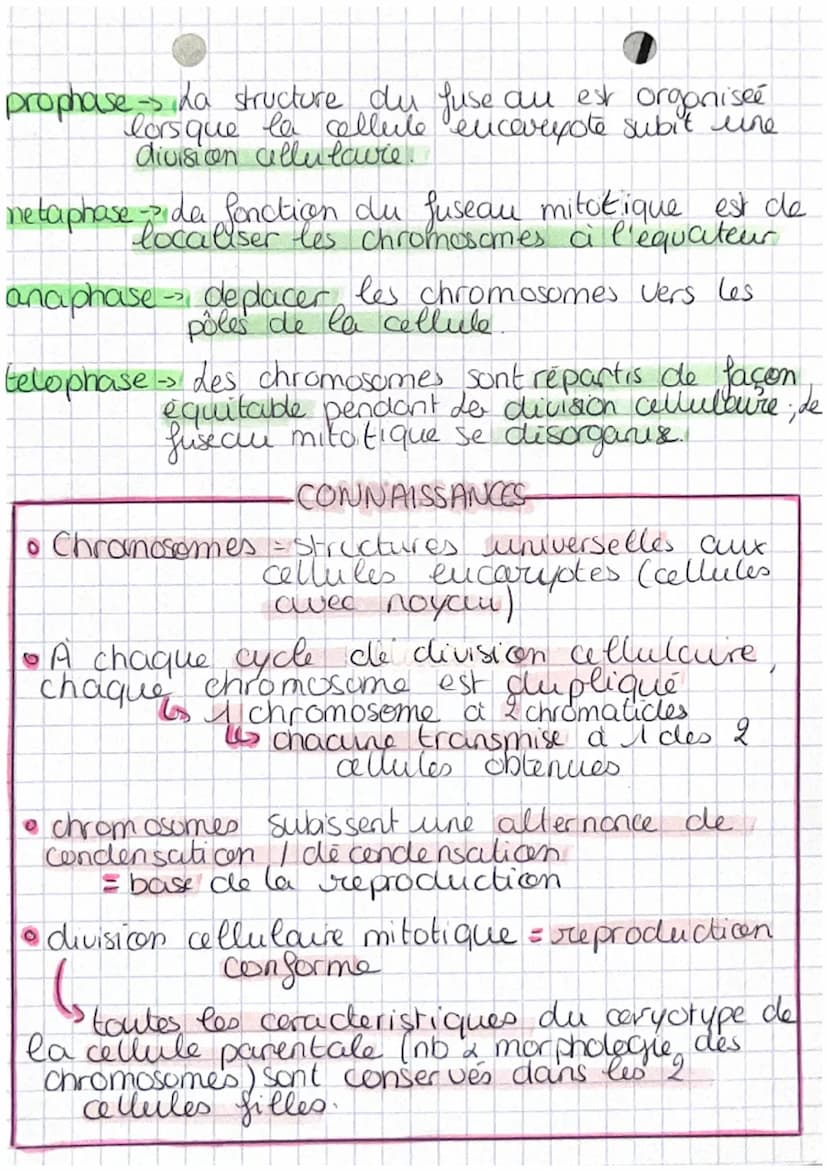 prophase -> La structure du fuseau est organiseé
lorsque la cellule eucaryote subit une
division cellulaire.
metaphase -> la fonction du fuseau mitotique est de
localiser les chromosomes à l'equateur
anaphase -> deplacer les chromosomes vers les
pôles de la cellule.
telophase -> des chromosomes sont répartis de façon
équitable pendant la division cellulaire ; le
fuseau mitotique se désorganise.
CONNAISSANCES
• Chromosomes = structures universelles aux
cellules eucaryotes (cellules
avec noyau)
• À chaque cycle de division cellulaire,
chaque chromosome est dupliqué
↳ 1 chromosome à 2 chromatides
↳ chacune transmise à 1 des 2
cellules obtenues
• chromosomes subissent une alternance de
condensation / décondensation
= base de la reproduction
• division cellulaire mitotique = reproduction
conforme
↳ toutes les caracteristiques du caryotype de
la cellule parentale (nb & morphologie des
chromosomes) sont conservés dans les 2
cellules filles.